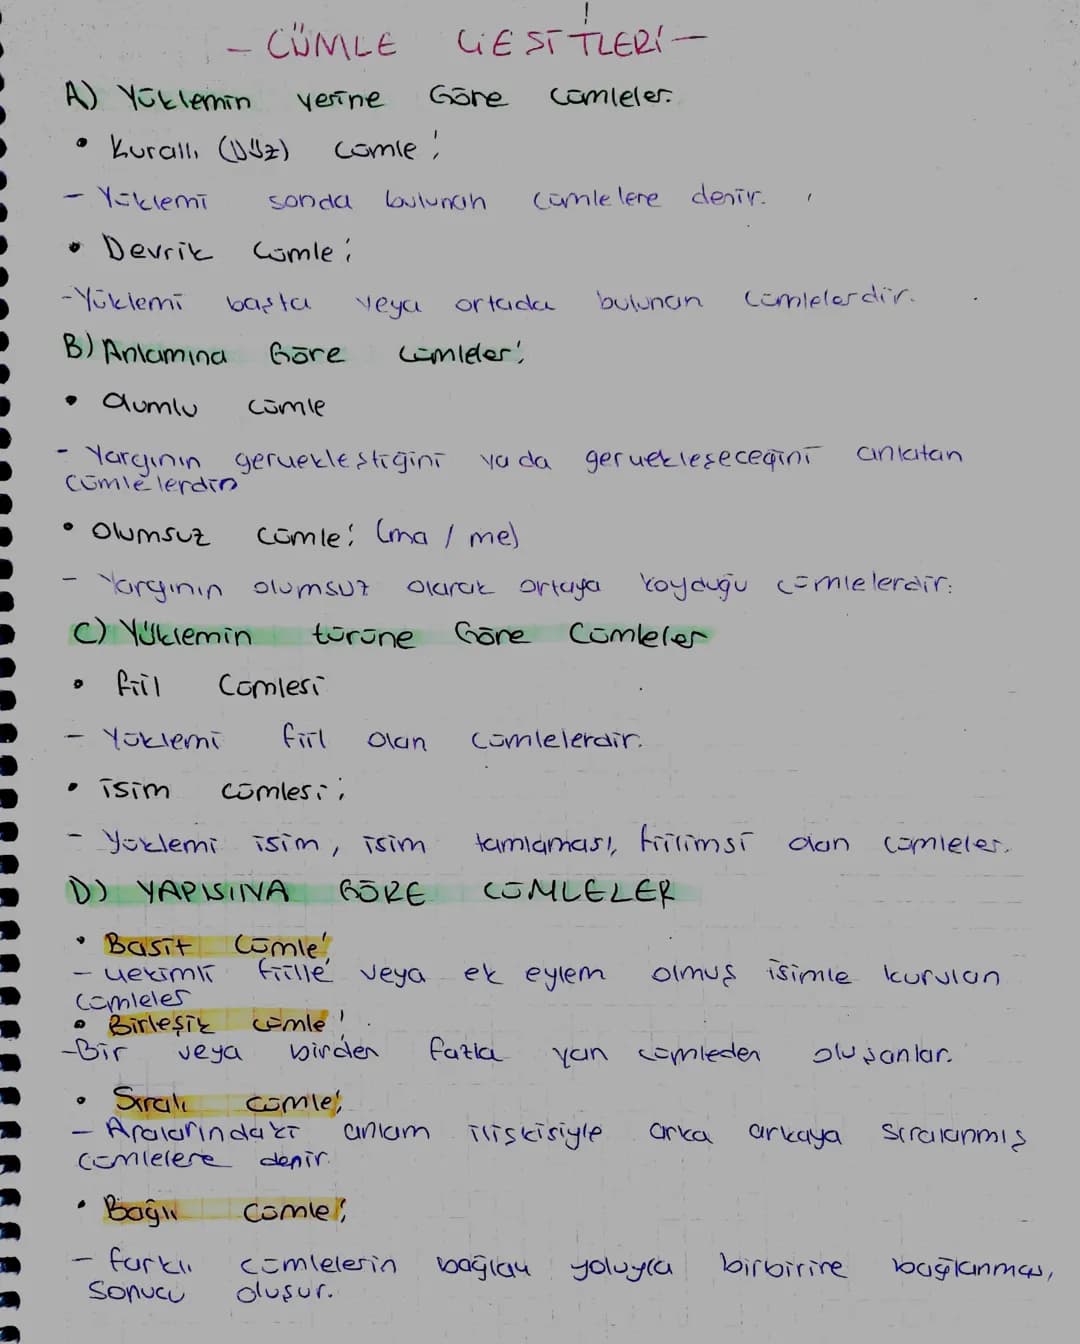 - CÜMLE ÇEŞİTLERİ -
A) Yüklemin yerine Göre cümleler.
• Kurallı (Düz) cümle;
- Yüklemi sonda bulunan cümlelere denir.
• Devrik Cümle;
- Yüklemi başta veya ortada bulunan cümlelerdir.
B) Anlamına Göre cümleler;
• Olumlu cümle
- Yargının gerçekleştiğini ya da gerçekleşeceğini anlatan
cümlelerdir
• Olumsuz cümle; (ma / me)
- Yargının olumsuz olarak ortaya koyduğu cümlelerdir.
C) Yüklemin türüne Göre Cümleler
• fiil Cümlesi
- Yüklemi fiil olan cümlelerdir.
• isim cümlesi;
- Yüklemi isim, isim tamlaması, fiilimsi olan cümleler.
D) YAPISINA GÖRE CÜMLELER
• Basit Cümle;
- çekimli fiille veya ek eylem olmuş isimle kurulan
cümleler
• Birleşik cümle;
- Bir veya birden fazla yan cümleden oluşanlar.
• Sıralı cümle;
- Aralarındaki anlam ilişkisiyle arka arkaya sıralanmış
cümlelere denir.
• Bağlı cümle;
- farklı cümlelerin bağlaç yoluyla birbirine bağlanması,
Sonucu oluşur.